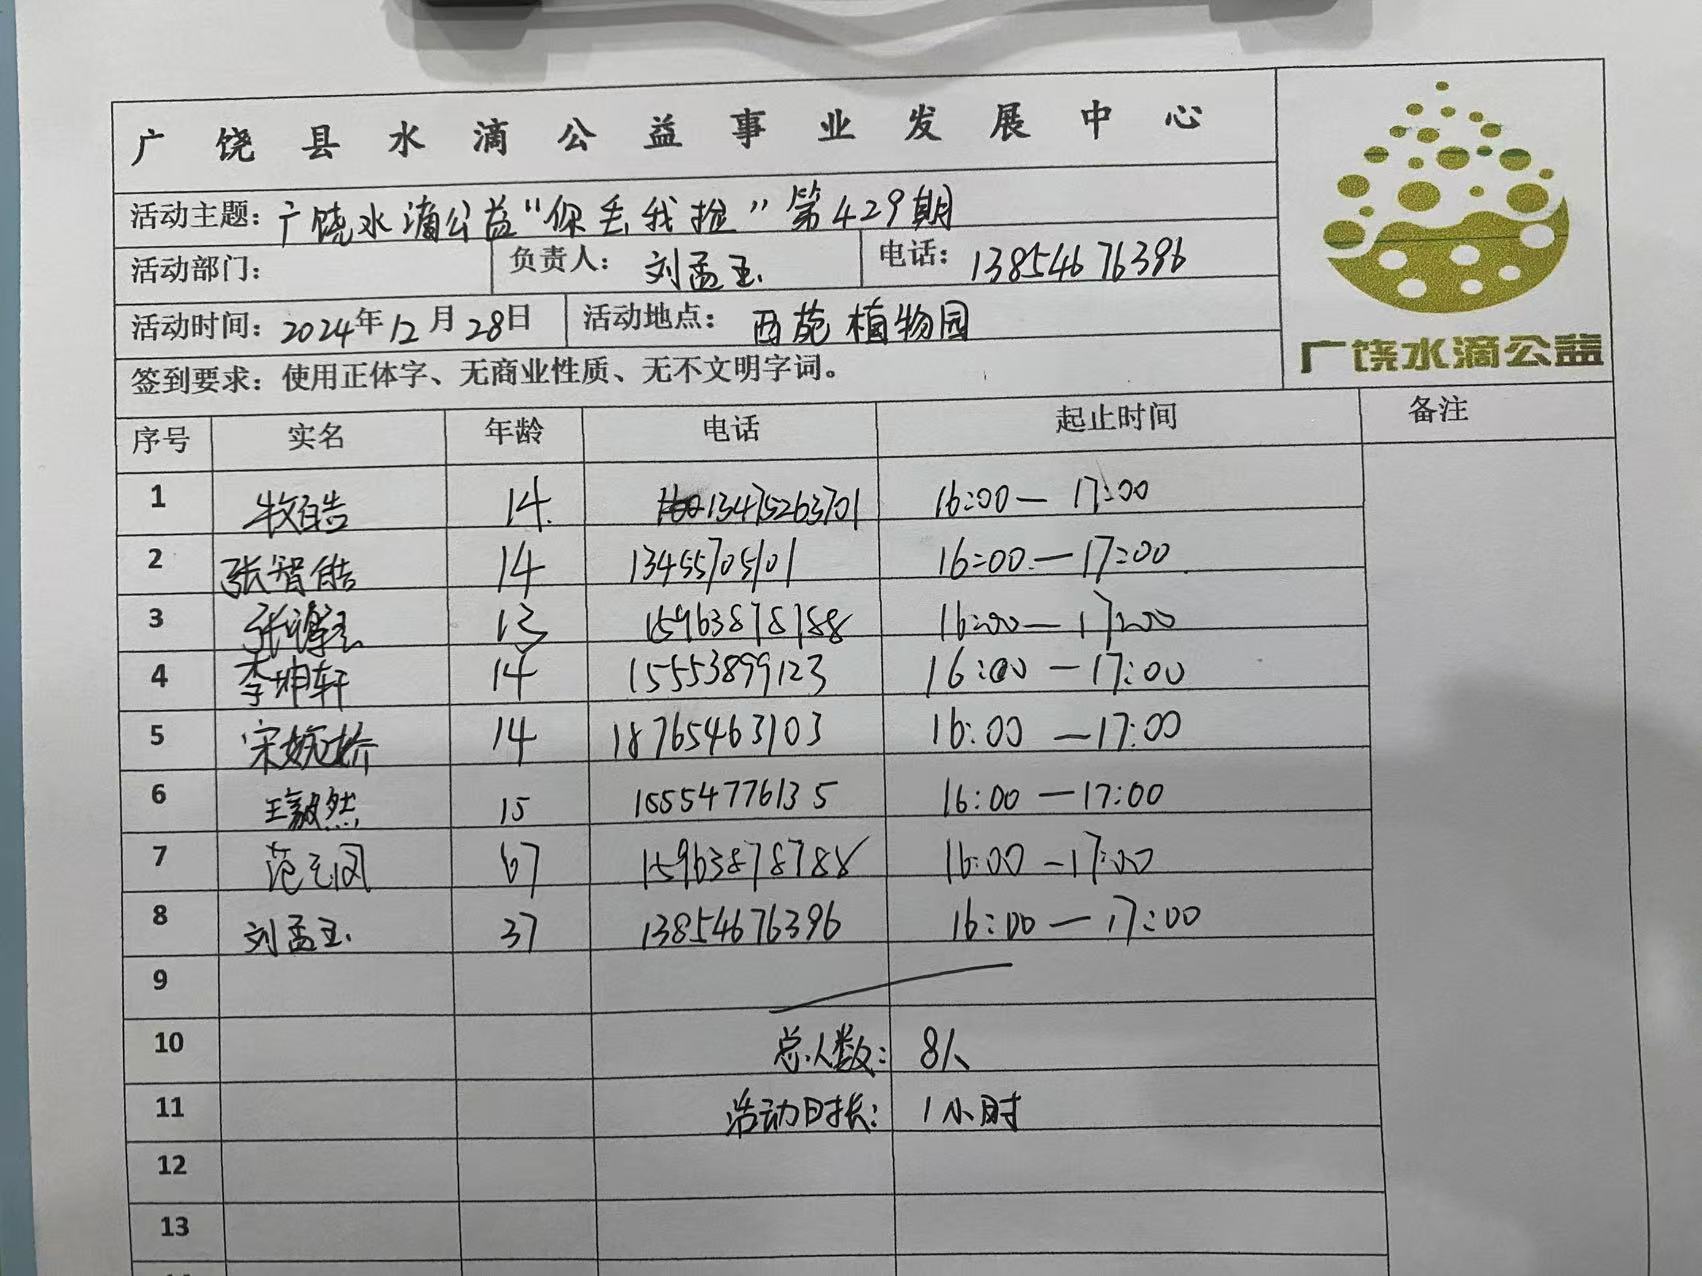 广饶县水滴公益事业发展中心
活动主题：广饶水滴公益“你丢我捡”第429期
活动部门： 负责人：刘孟玉 电话：13854676396
活动时间：2024年12月28日 活动地点：西苑植物园
签到要求：使用正体字、无商业性质、无不文明字词。
广饶水滴公益
序号 实名 年龄 电话 起止时间 备注
1 牧皓 14 13475263701 16:00—17:00
2 张智皓 14 13455705101 16:00—17:00
3 张 13 15963878788 16:00—17:00
4 李坤轩 14 15553899123 16:00—17:00
5 宋婉娇 14 18765463103 16:00—17:00
6 王毅然 15 15554776135 16:00—17:00
7 范元凤 67 15963878788 16:00—17:00
8 刘孟玉 37 13854676396 16:00—17:00
9
10 总人数：8人
11 活动时长：1小时
12
13